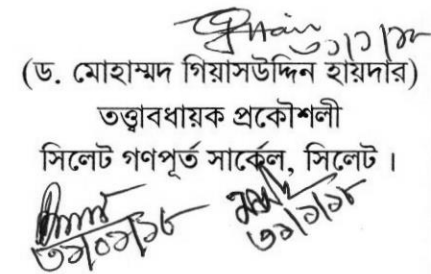 ৩১/১/১৮
(ড. মোহাম্মদ গিয়াসউদ্দিন হায়দার)
তত্ত্বাবধায়ক প্রকৌশলী
সিলেট গণপূর্ত সার্কেল, সিলেট ।
৩১/০১/১৮ ৩১/১/১৮